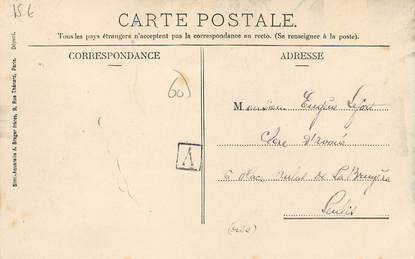 15 €
CARTE POSTALE.
Tous les pays étrangers n'acceptent pas la correspondance au recto. (Se renseigner à la poste).
CORRESPONDANCE
ADRESSE
60
Monsieur Eugène
Clerc d'avoué
6 Place de La Bruyère
Senlis
(Oise)
V
Simi-Aquarelle A. Breger frères, 9, Rue Thénard, Paris. Déposé.